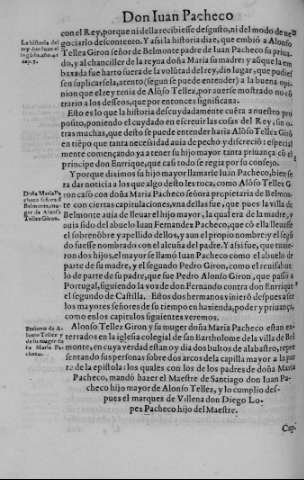 Don Iuan Pacheco
con el Rey, porque ni della recibiesse desgusto, ni del modo de ne
gociar lo descontento. Y assi la historia dize, que embió a Alonso
Tellez Giron señor de Belmonte padre de Iuan Pacheco su priua-
do, y al chanciller de la reyna doña Maria su madre; y aũque la em
baxada fue harto fuera de la volũtad del rey, dio lugar, que pudies
sen suplicarselo, atento (segun se puede entender) a la buena opi-
nion que el rey tenia de Alõso Tellez, por auerse mostrado no cõ
trario a los desseos, que por entonces significaua.
Esto es lo que la historia descuydadamente cuẽta a nuestro pro
posito, poniendo el cuydado en escreuir las cosas del Rey, sin o-
tras muchas, que desto se puede entender haria Alõso Tellez Girõ
en tiẽpo que tanta necessidad auia de pecho y discrecion: especial
mente començando ya a tener su hijo mayor tanta priuança cõ el
principe don Enrrique, que casi todo se regia por su consejo.
Y porque diximos su hijo mayor llamarse Iuan Pacheco, bien se
ra dar noticia a los que algo desto leè roca, como Alõso Tellez G
ron casó con doña Maria Pacheco señora propietaria de Belmon-
te con ciertas capitulaciones, vna dellas fue, que pues la villa de
Belmonte auia de lleuar el hijo mayor, la qual era de la madre, y
auia sido del abuelo Iuan Fernandez Pacheco, que cõ ella lleuasse
el sobrenõbre y apellido dellos, y aun el propio nombre y el segũ
do fuesse nombrado con el alcuña del padre. Y assi fue, que tuuie-
ron dos hijos, el mayor se llamó Iuan Pacheco como el abuelo de
parte de su madre, y el segundo Pedro Giron, como el
lo de parte de su padre, que fue Pedro Alonso Giron, que passó a
Portugal, siguiendo la voz de don Fernando contra don Enrrique
el segundo de Castilla. Estos dos hermanos vinierõ despues a ser
los mayores señores de su tiempo en hazienda, poder y priuança,
como en los capitulos siguientes veremos.
Alonso Tellez Giron y su muger doña Maria Pacheco estan en-
terrados en la iglesia colegial de san Bartholome de la villa de Bel
monte, en cuya verdad estan oy dia dos bultos de alabastro, repre
sentando sus personas sobre dos arcos de la capilla mayor a la par
te de la epistola: los quales con los de los padres de doña Maria
Pacheco, mandó hazer el Maestre de Santiago don Iuan Pa-
checo hijo mayor de Alonso Tellez, y lo cumplio des-
pues el marques de Villena don Diego Lo-
pes Pacheco hijo del Maestre.
Cap.
La historia del
rey don Iuan el
cap. 9.
Doña Maria Pa
checo señora d
Belmonte, mu-
ger de Alonso
Tellez Giron.
Entierro de A-
lonso Tellez y
de su muger do
ña Maria Pa-
checo.